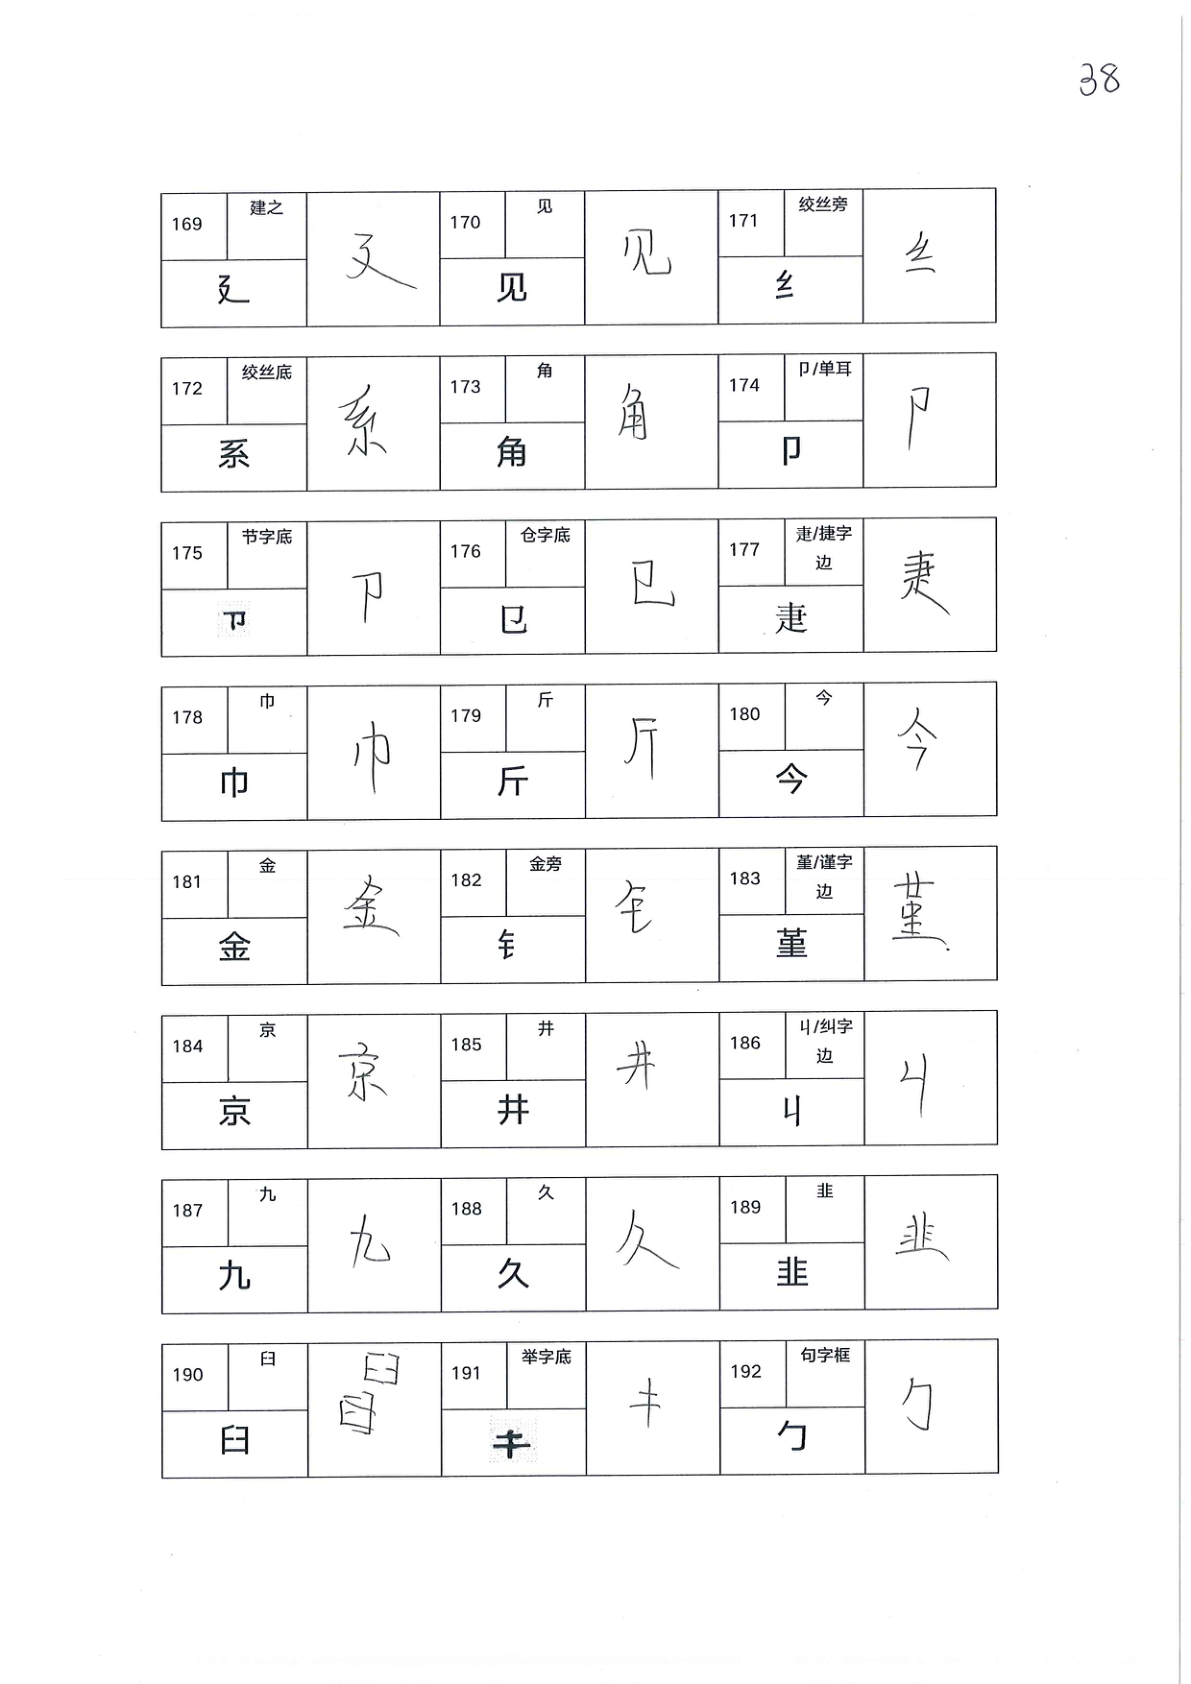 38
169 建之 廴 廴 170 见 见 见 171 绞丝旁 纟 纟
172 绞丝底 系 系 173 角 角 角 174 卩/单耳 卩 卩
175 节字底 卩 卩 176 仓字底 㔾 㔾 177 疌/捷字
边 疌 疌
178 巾 巾 巾 179 斤 斤 斤 180 今 今 今
181 金 金 金 182 金旁 钅 钅 183 堇/谨字
边 堇 堇
184 京 京 京 185 井 井 井 186 丩/纠字
边 丩 丩
187 九 九 九 188 久 久 久 189 韭 韭 韭
190 臼 臼 臼 191 举字底 キ キ 192 句字框 勹 勹